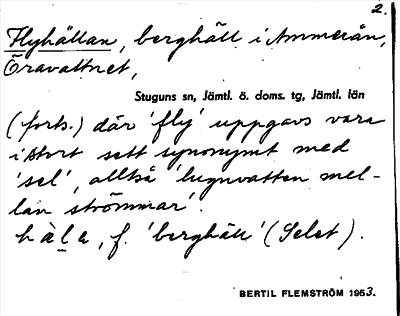 2.
Flyhällan, berghäll i Ammerån,
Öravattnet,
Stuguns sn, Jämtl. ö. doms. tg, Jämtl. län
(forts.) där 'fly' uppgavs vara
i stort sett synonymt med
'sel', alltså 'lugnvatten mel-
lan strömmar'.
hàla, f. 'berghäll' (Selet).
BERTIL FLEMSTRÖM 1953.